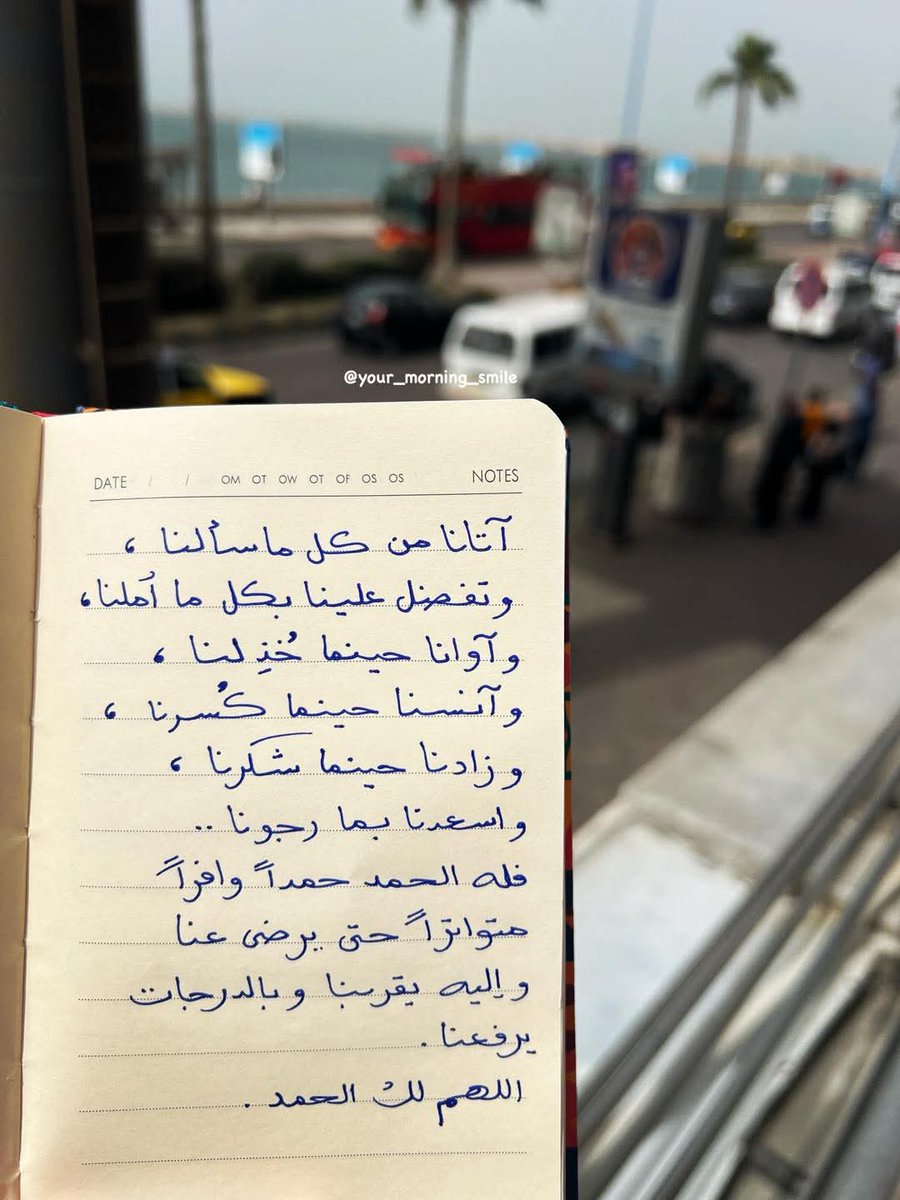 @your_morning_smile
DATE / / OM OT OW OT OF OS OS NOTES
آتانا من كل ما سألنا ،
وتفضل علينا بكل ما أملنا،
وآوانا حينما خُذِلنا ،
وآنسنا حينما كُسرنا ،
وزادنا حينما شكرنا ،
واسعدنا بما رجونا ..
فله الحمد حمداً وافراً
متواتراً حتى يرضى عنا
وإليه يقربنا وبالدرجات
يرفعنا .
اللهم لك الحمد .